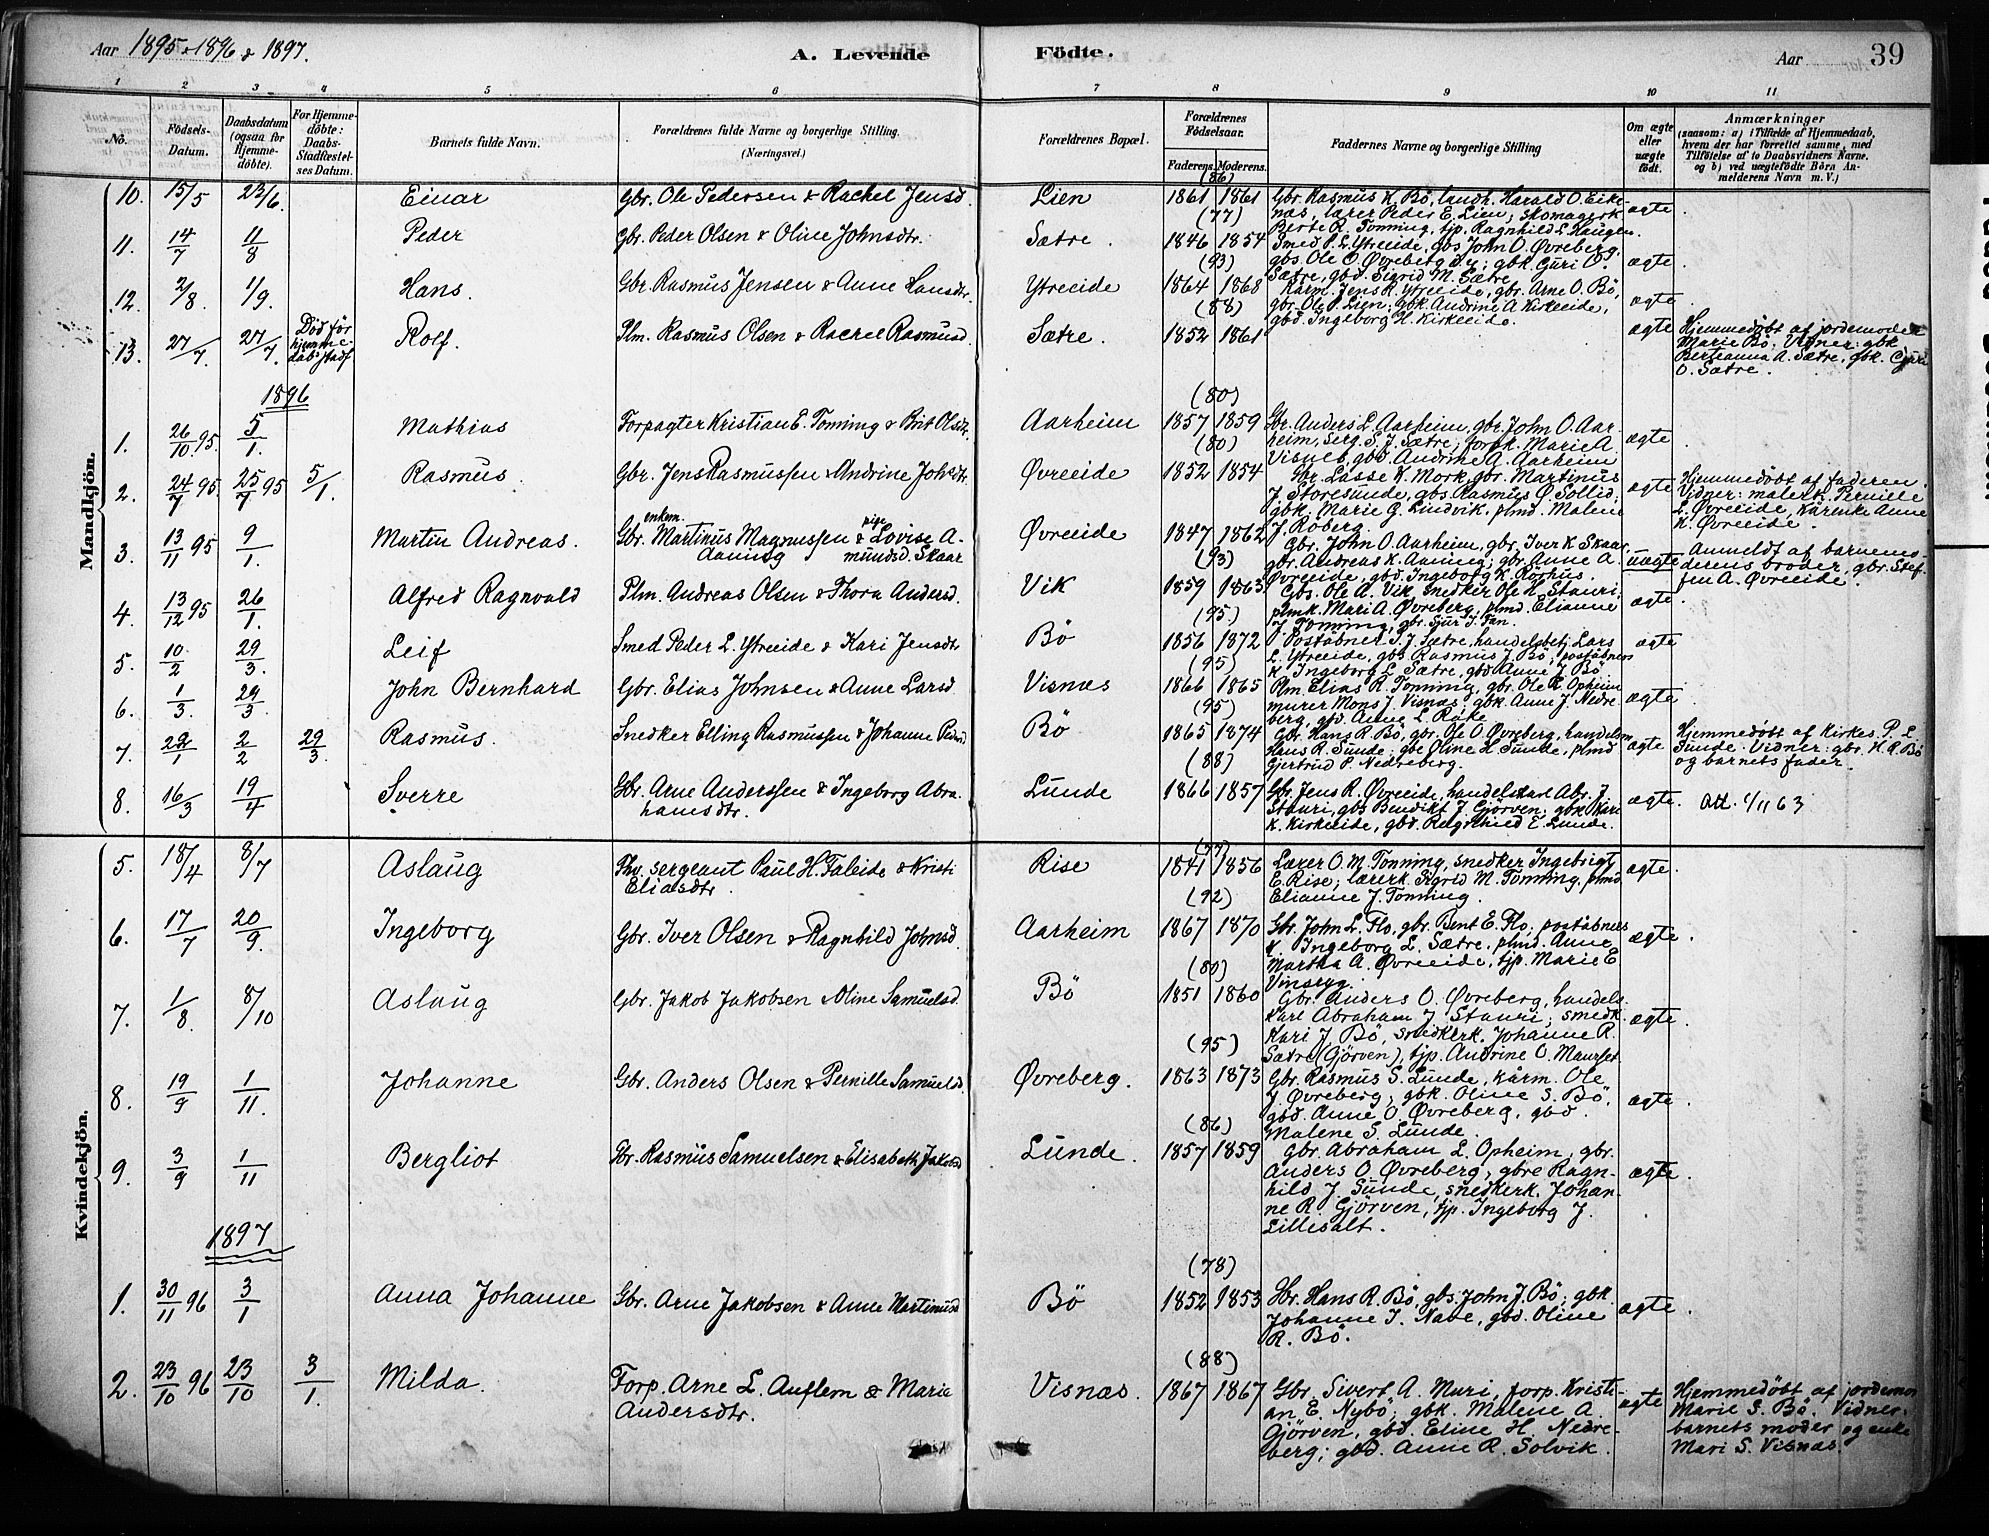 Aar 1895 & 1896 & 1897.
A. Levende Födte.
Aar
39
1 2 3 4 5 6 7 8 9 10 11
No.
Födsels-Datum.
Daabsdatum (ogsaa for Hjemme-döbte).
For Hjemme-döbte: Daabs-Stadfæstel-ses Datum.
Barnets fulde Navn.
Forældrenes fulde Navne og borgerlige Stilling. (Næringsvei.)
Forældrenes Bopæl.
Forældrenes Födselsaar.
Faderens. Moderens.
Faddernes Navne og borgerlige Stilling
Om ægte eller uægte födt.
Anmærkninger
(saasom: a) i Tilfælde af Hjemmedaab,
hvem der har forrettet samme, med
Tilföielse af to Daabsvidners Navne.
og b) ved uægtefödte Börn An-
melderens Navn m. V.)
Mandkjön.
10. 15/5 23/6. Einar Gbr. Ole Pedersen & Rachel Jensd. Lien (86) 1861 1861
Gbr. Rasmus K. Bö, landh. Harald O. Eike-
næs, lærer Peder E. Lien; skomagerk.
Berte R. Tonning, tjp. Ragnhild L. Haugen.
ægte.
11. 14/7 11/8 Peder Gbr. Peder Olsen & Oline Johnsdtr. Sætre. (77) 1846 1854
Smed P. L. Ytreeide, gbs John O. Øvreberg
gbs. Ole O. Øvreberg d.y.; gbk. Guri O.
Sætre, gbd. Sigrid M. Sætre
ægte.
12. 2/8 1/9. Hans. Gbr. Rasmus Jensen & Anne Hansdtr. Ytreeide (93) 1864 1868
Kårm. Jens R. Ytreeide, gbr. Arne O. Bö,
gbr. Ole P. Lien; gbk. Andrine A. Kirkeeide,
gbd. Ingeborg H. Kirkeeide.
ægte.
13. 27/7 27/7. Död för hjemme-daabs stadf Rolf. Plm. Rasmus Olsen & Rachel Rasmusd. Sætre. (88) 1852 1861
ægte
Hjemmedöbt af jordemoder
Marie Bö, Vidner: gbk
Berteanna A. Sætre, gbk. Guri
O. Sætre.
1896
1. 26/10 95. 5/1. Mathias Forpagter Kristian E. Tonning & Brit Olsdtr. Aarheim (80) 1857 1859
Gbr. Anders L. Aarheim, gbr. John O. Aar-
heim, serg. S. J. Sætre; forpk. Marie A.
Visnes, gbd. Andrine A. Aarheim
ægte.
2. 24/7 95. 25/7 95 5/1. Rasmus. Gbr. Jens Rasmussen & Andrine Johsdtr. Øvreeide (80) 1852 1854
Gbr. Lasse K. Mork, gbr. Martinus
J. Storesunde, gbs. Rasmus O. Sollid;
gbk. Marie G. Lindvik, plmd. Malene
J. Röberg.
ægte
Hjemmedöbt af faderen.
Vidner: malerk. Pernille
L. Øvreeide, Kårenke Anne
K. Øvreeide.
3. 13/11 95 9/1. Martin Andreas. Gbr. enkem. Martinus Magnussen Aaning & pige Lovise A-mundsd Skaar Øvreeide 1847 1862
Gbr. John O. Aarheim, gbr. Iver K. Skaar,
gbr. Andreas K. Aaning; gbr. Anne A.
Øvreeide, gbd. Ingeborg K. Rörhus.
uægte
Anmeldt af barnemo-
derens broder, gbr. Stef-
fen A. Øvreeide.
4. 13/12 95 26/1. Alfred Ragnvald Plm. Andreas Olsen & Thora Andersd. Vik (93) 1859 1863
Gbs. Ole A. Vik, snedker Ole H. Stauri,
plmk. Mari A. Øvreberg, plmd. Elianne
J. Tonning, gbr. Sjur J. Tan.
ægte.
5. 10/2 29/3. Leif Smed Peder L. Ytreeide & Kari Jensdtr Bö (95) 1856 1872
Poståbner S. J. Sætre, handelsbetj. Lars
L. Ytreeide, gbs Rasmus J. Bö; poståbners
k. Ingeborg L. Sætre, gbd Anne J. Bö
ægte
6. 1/3. 29/3 John Bernhard Gbr. Elias Johnsen & Anne Larsd. Visnæs (95) 1866 1865
Plm. Elias R. Tonning, gbr. Ole R. Opheim
murer Mons J. Visnæs; gbk. Anne J. Nedre-
berg, gbd. Anne L. Rake
ægte.
7. 22/1 2/2 29/3. Rasmus. Snedker Elling Rasmussen & Johanne Pedersd Bö (95) 1865 1874
Gbr. Hans R. Bö, gbr. Ole O. Øvreberg, handelsm.
Hans R. Sunde; gbk Oline H. Sunde, plmd
Gjertrud P. Nedreberg.
ægte.
Hjemmedöbt af Kirkes. P. L.
Sunde. Vidner: gbr. H. R. Bö
og barnets fader.
8. 16/3 19/4 Sverre Gbr. Arne Anderssen & Ingeborg Abra-hamsdtr. Lunde (88) 1866 1857
Gbr. Jens R. Øvreeide, handelskarl Abr. J.
Stauri, gbs Bendikt J. Gjörven; gbk Kari
K. Kirkeeide, gbd. Ragnhild E. Lunde.
ægte. Att. 1/11 63
Kvindekjön.
5. 18/4 8/7 Aslaug Fhv. sergeant Paul H. Faleide & Kristi Eliasdtr. Rise (77) 1841 1856
Lærer O. M. Tonning, snedker Ingebrigt
E. Rise; lærerk. Sigrid M. Tonning, plmd
Elianne J. Tonning.
ægte.
6. 17/7 20/9. Ingeborg Gbr. Iver Olsen & Ragnhild Johnsd. Aarheim (92) 1867 1870
Gbr. John L. Flo, gbr. Bent E. Flo; poståbners
k. Ingeborg L. Sætre, plmd. Anne
Martha A. Øvreeide, tjp. Marie E
Vinsryg.
ægte.
7. 1/8. 8/10 Aslaug Gbr. Jakob Jakobsen & Oline Samuelsd. Bö (80) 1851 1860
Gbr. Anders O. Øvreberg, handels-
karl Abraham J. Stauri; smedk.
Kari J. Bö, snedkerk. Johanne R.
Sætre (Gjörven), tjp. Andrine O. Maurset
ægte.
8. 19/9 1/11. Johanne Gbr. Anders Olsen & Pernille Samuelsd Øvreberg. (95) 1863 1873
Gbr. Rasmus S. Lunde, kårm. Ole
J. Øvreberg; gbk. Oline S. Bö,
gbd. Anne O. Øvreberg, gbd.
Malene S. Lunde.
ægte.
9. 3/9 1/11 Bergliot Gbr. Rasmus Samuelsen & Elisabeth Jakobsd Lunde. (86) 1857 1859
Gbr. Abraham L. Opheim, gbr.
Anders O. Øvreberg; gbre Ragn-
hild J. Sunde, snedkerk. Johan-
ne R. Gjörven, tjp. Ingeborg J.
Lillesalt.
ægte.
1897
1. 30/11 96 3/1 Anna Johanne Gbr. Arne Jakobsen & Anne Martinusd Bö (78) 1852 1853
Gbr. Hans R. Bö, gbs. John J. Bö; gbk
Johanne J. Nave, gbd. Oline
R. Bö.
ægte.
2. 23/10 96 23/10 3/1. Milda. Forp. Arne L. Auflem & Marie Andersdtr. Visnæs. (88) 1867 1867
Gbr. Sivert A. Muri, forp. Kristi-
an E. Nybö; gbk. Malene A.
Gjörven, gbd. Eline H. Nedre-
berg; gbd. Anne R. Solvik.
ægte
Hjemmedöbt af jordemor
Marie S. Bö. Vidner:
barnets moder og enke
Mari S. Visnæs.